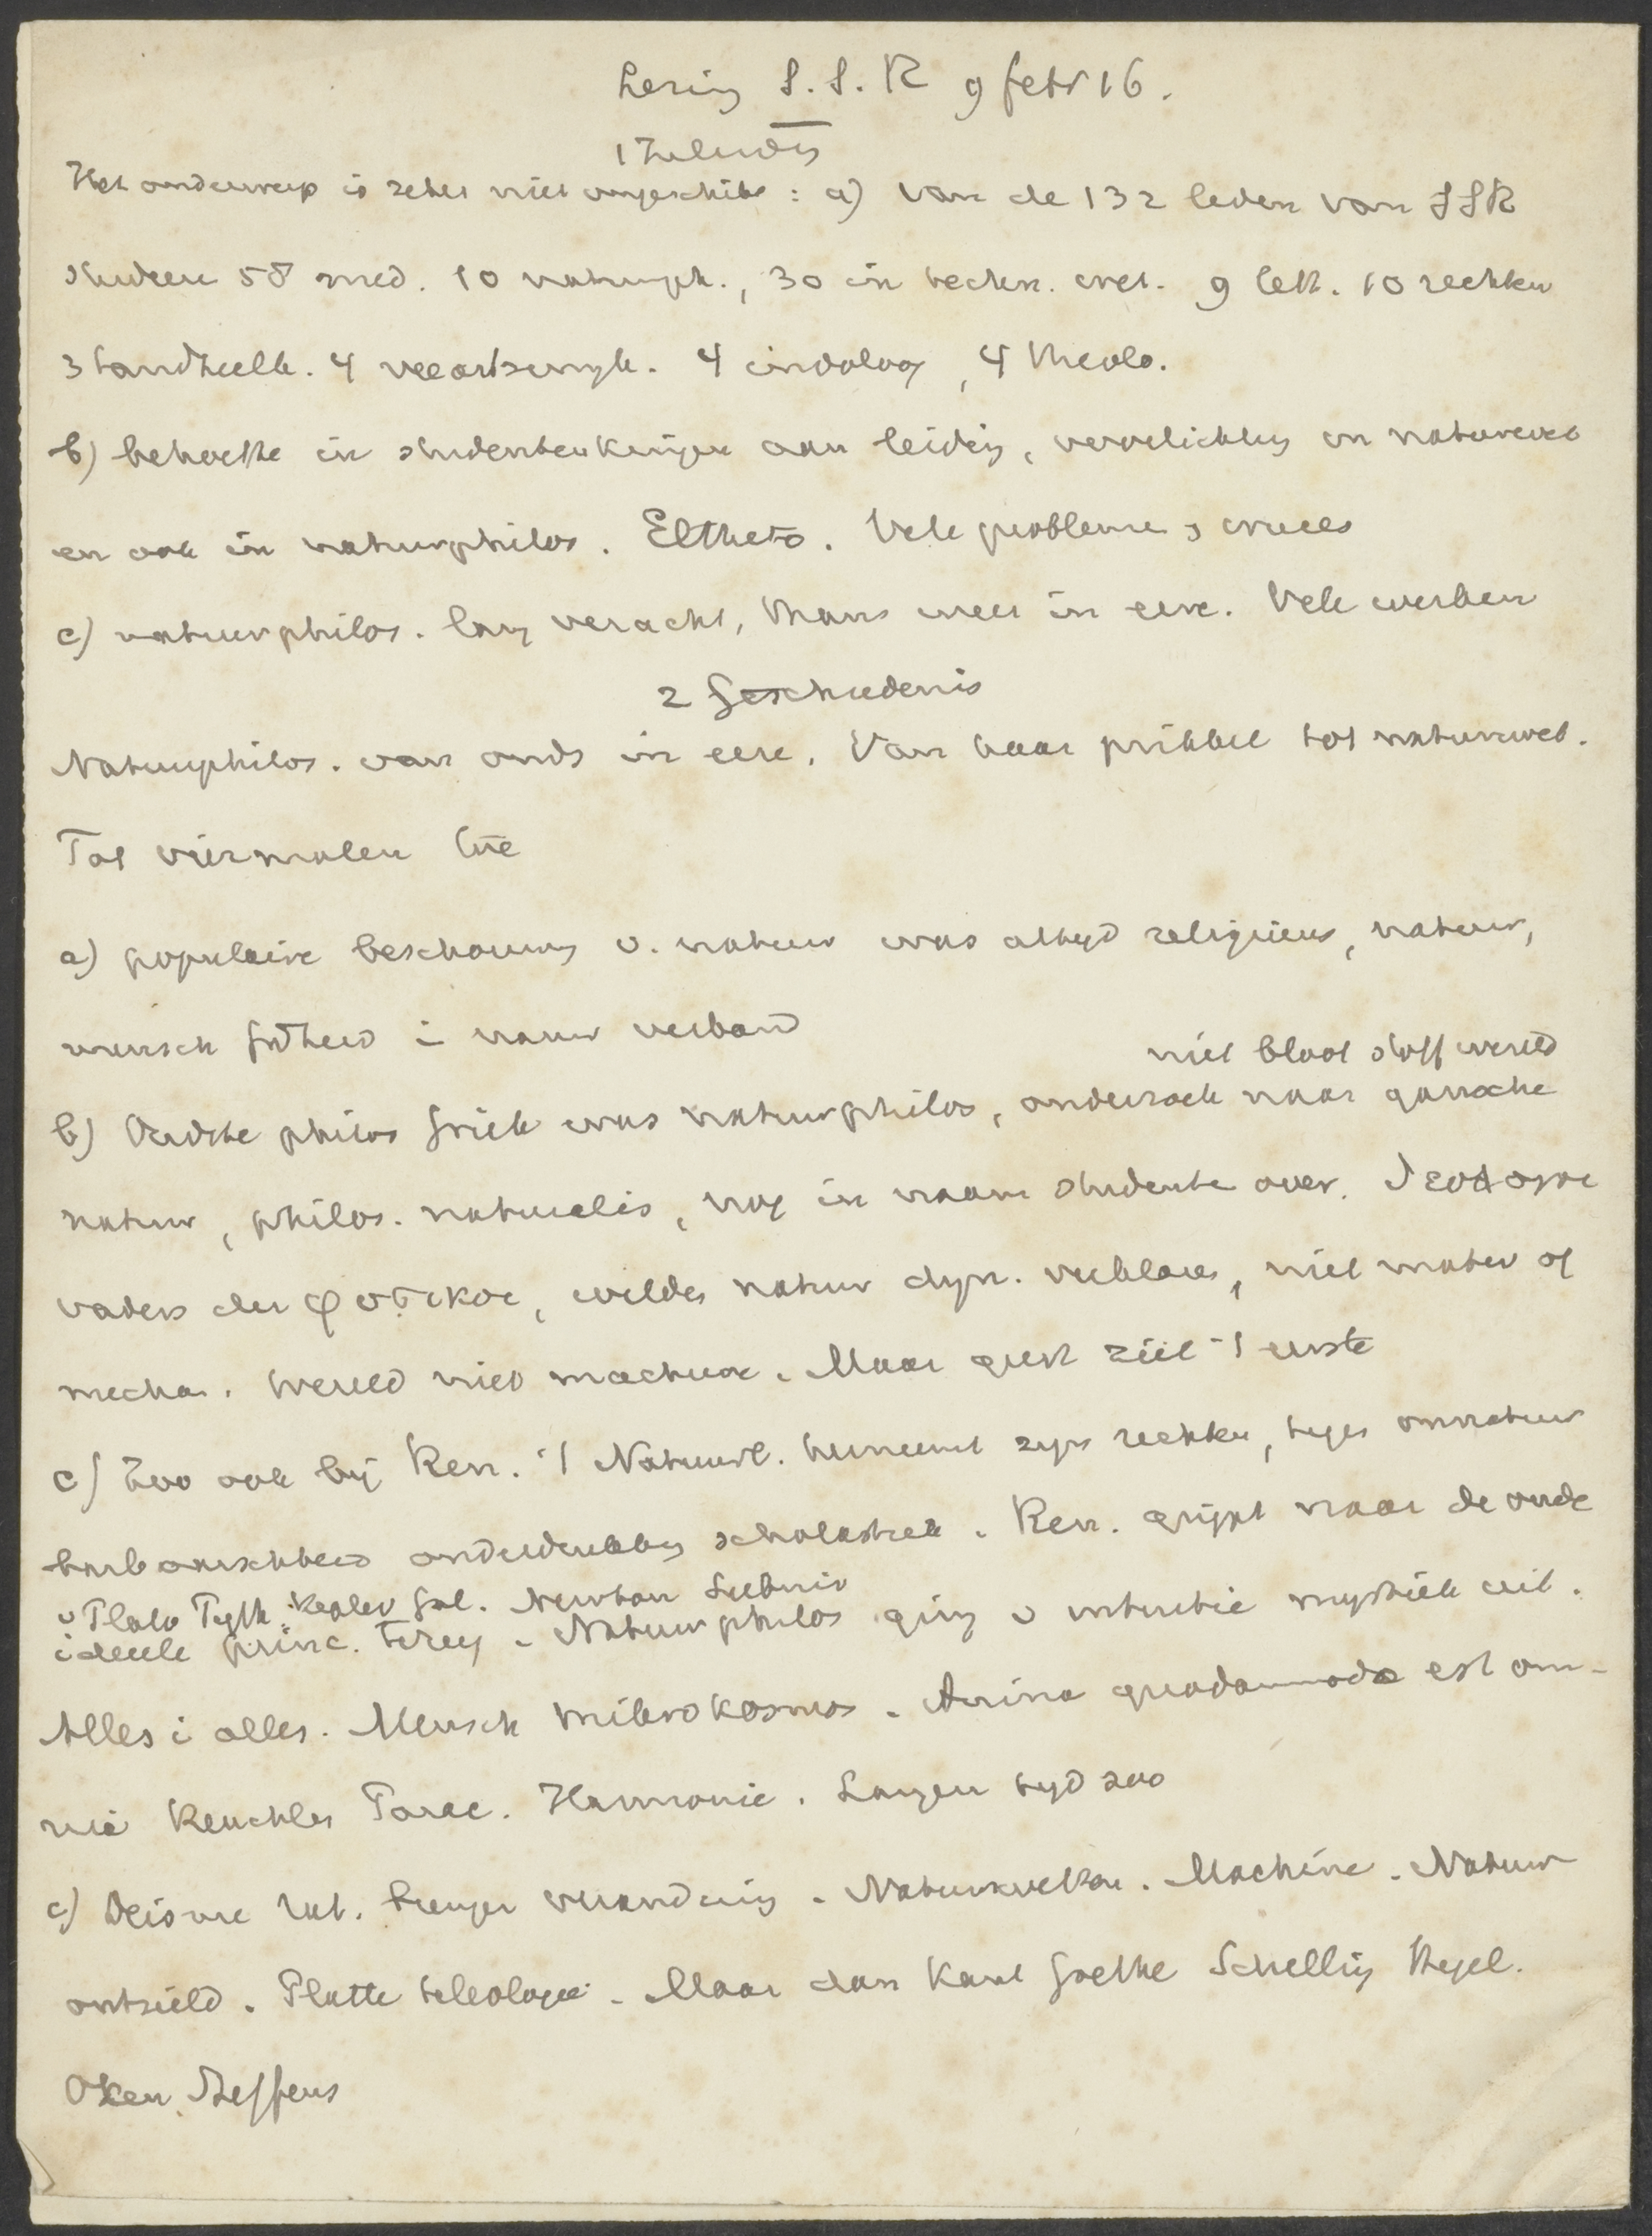 Lezing S.S.R 9 febr 16.
1 Inleiding
Het onderwerp is zeker niet ongeschikt : a) van de 132 leden van SSR
studeren 58 med. 10 natuurph., 30 in techn. wet. 9 lett. 10 rechten
3 landheelk. 4 veeartsenijk. 4 indoloog, 4 theolo.
b) behoefte in studentenkringen aan leiding, voorlichting in natuurwet
en ook in natuurphilos. Eltheto. Vele problemen, cruces
c) natuurphilos. lang veracht, thans weer in eere. Vele werken
2 Geschiedenis
Natuurphilos. van ouds in eere. Van haar prikkel tot natuurwet.
Tot viermalen toe
a) populaire beschouwing v. natuur was altijd religieus, natuur,
mensch godheid i nauw verband
niet bloot stoff wereld
b) Oudste philos Griek was natuurphilos, onderzoek naar gansche
natuur, philos. naturalis, nog in naam studente over.
vaders der φυσικοι, wilden natuur dyn. verklaren, niet mater of
mechan. Wereld niet machine. Maar geest ziel 't eerste
c) Zoo ook bij Ren. 't Natuurl. herneemt zijn rechten, tegen onnatuur
barbaarschheid onderdrukking scholastiek. Ren. grijpt naar de oude
v Plato Pyth. Kepler Gal. Newton Leibniz
ideeele princ. terug. Natuurphilos ging v intuitie mystiek uit.
Alles i alles. Mensch mikrokosmos. Anima quodammodo est om-
nia Reuchlin Parac. Harmonie. Langen tijd zoo
c) Deisme Rat. brengen verandering. Natuurwetten. Machine. Natuur
ontzield. Platte teleologie. Maar dan Kant Goethe Schelling Hegel.
Oken, Steffens